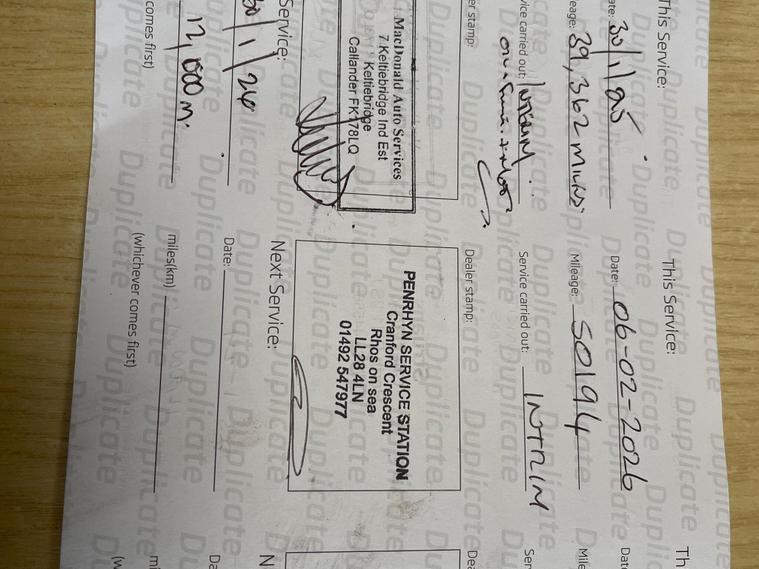 This Service:
Date: 30/1/25
Mileage: 39,362 Miles.
Service carried out: Interim
Dealer stamp:
MacDonald Auto Services
7 Keltiebridge Ind Est
Keltiebridge
Callander FK178LQ
Service:
30/1/26
12,000 m.
comes first)
This Service:
Date: 06-02-2026
Mileage: 50194
Service carried out: INTRIM
Dealer stamp:
PENRHYN SERVICE STATION
Cranford Crescent
Rhos on sea
LL28 4LN
01492 547977
Next Service:
Date:
miles(km)
(whichever comes first)
Th
Date
Mile
Ser
Dea
N
Da
mi
(w
Duplicate Duplicate Duplicate